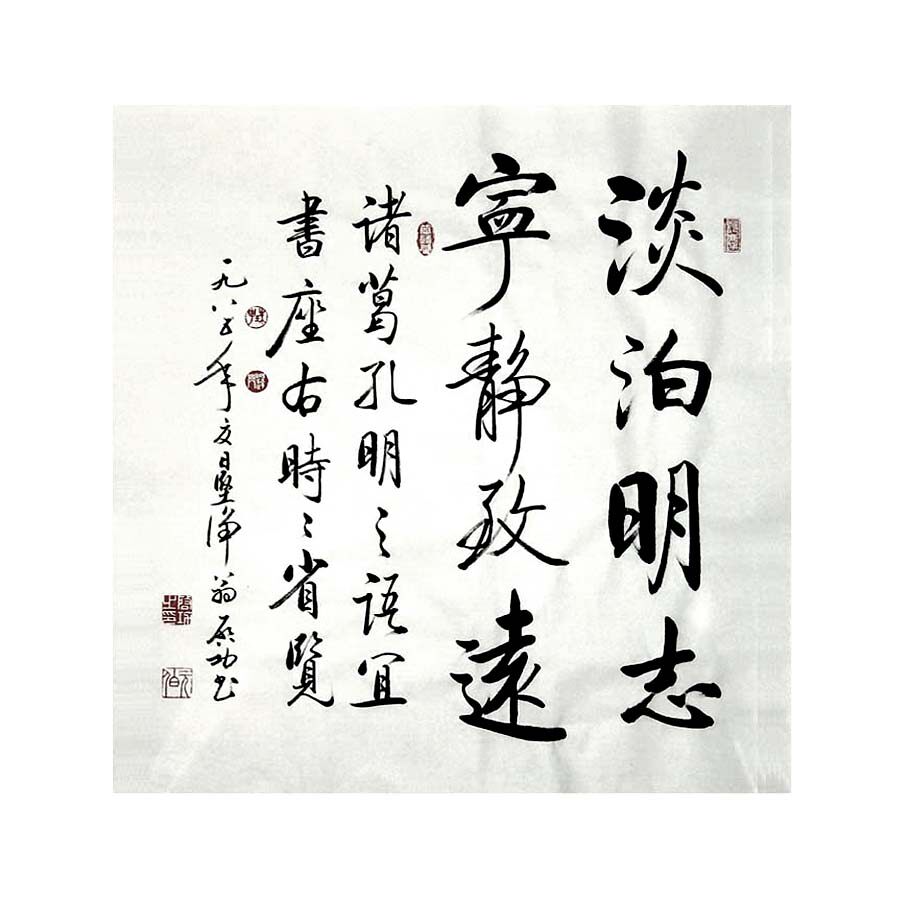 淡泊明志
寧静致遠
诸葛孔明之语宜
書座右時〻省覽
一九八五年夏日堅净翁启功书